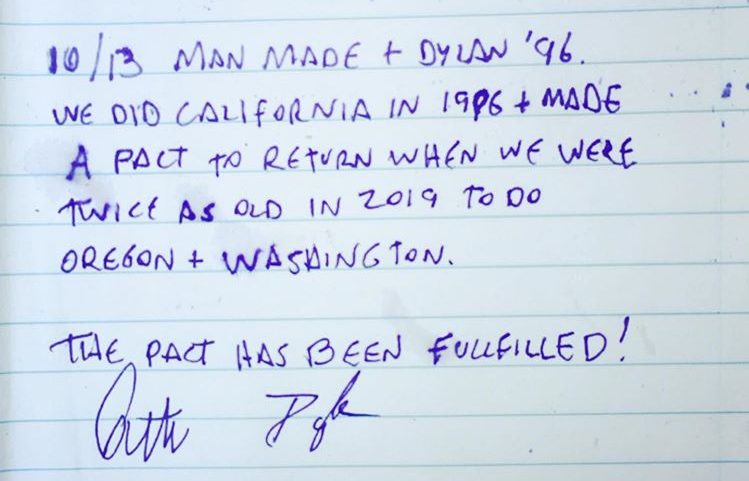 10/13 MAN MADE + DYLAN '96.
WE DID CALIFORNIA IN 1996 + MADE
A PACT TO RETURN WHEN WE WERE
TWICE AS OLD IN 2019 TO DO
OREGON + WASHINGTON.
THE PACT HAS BEEN FULLFILLED!